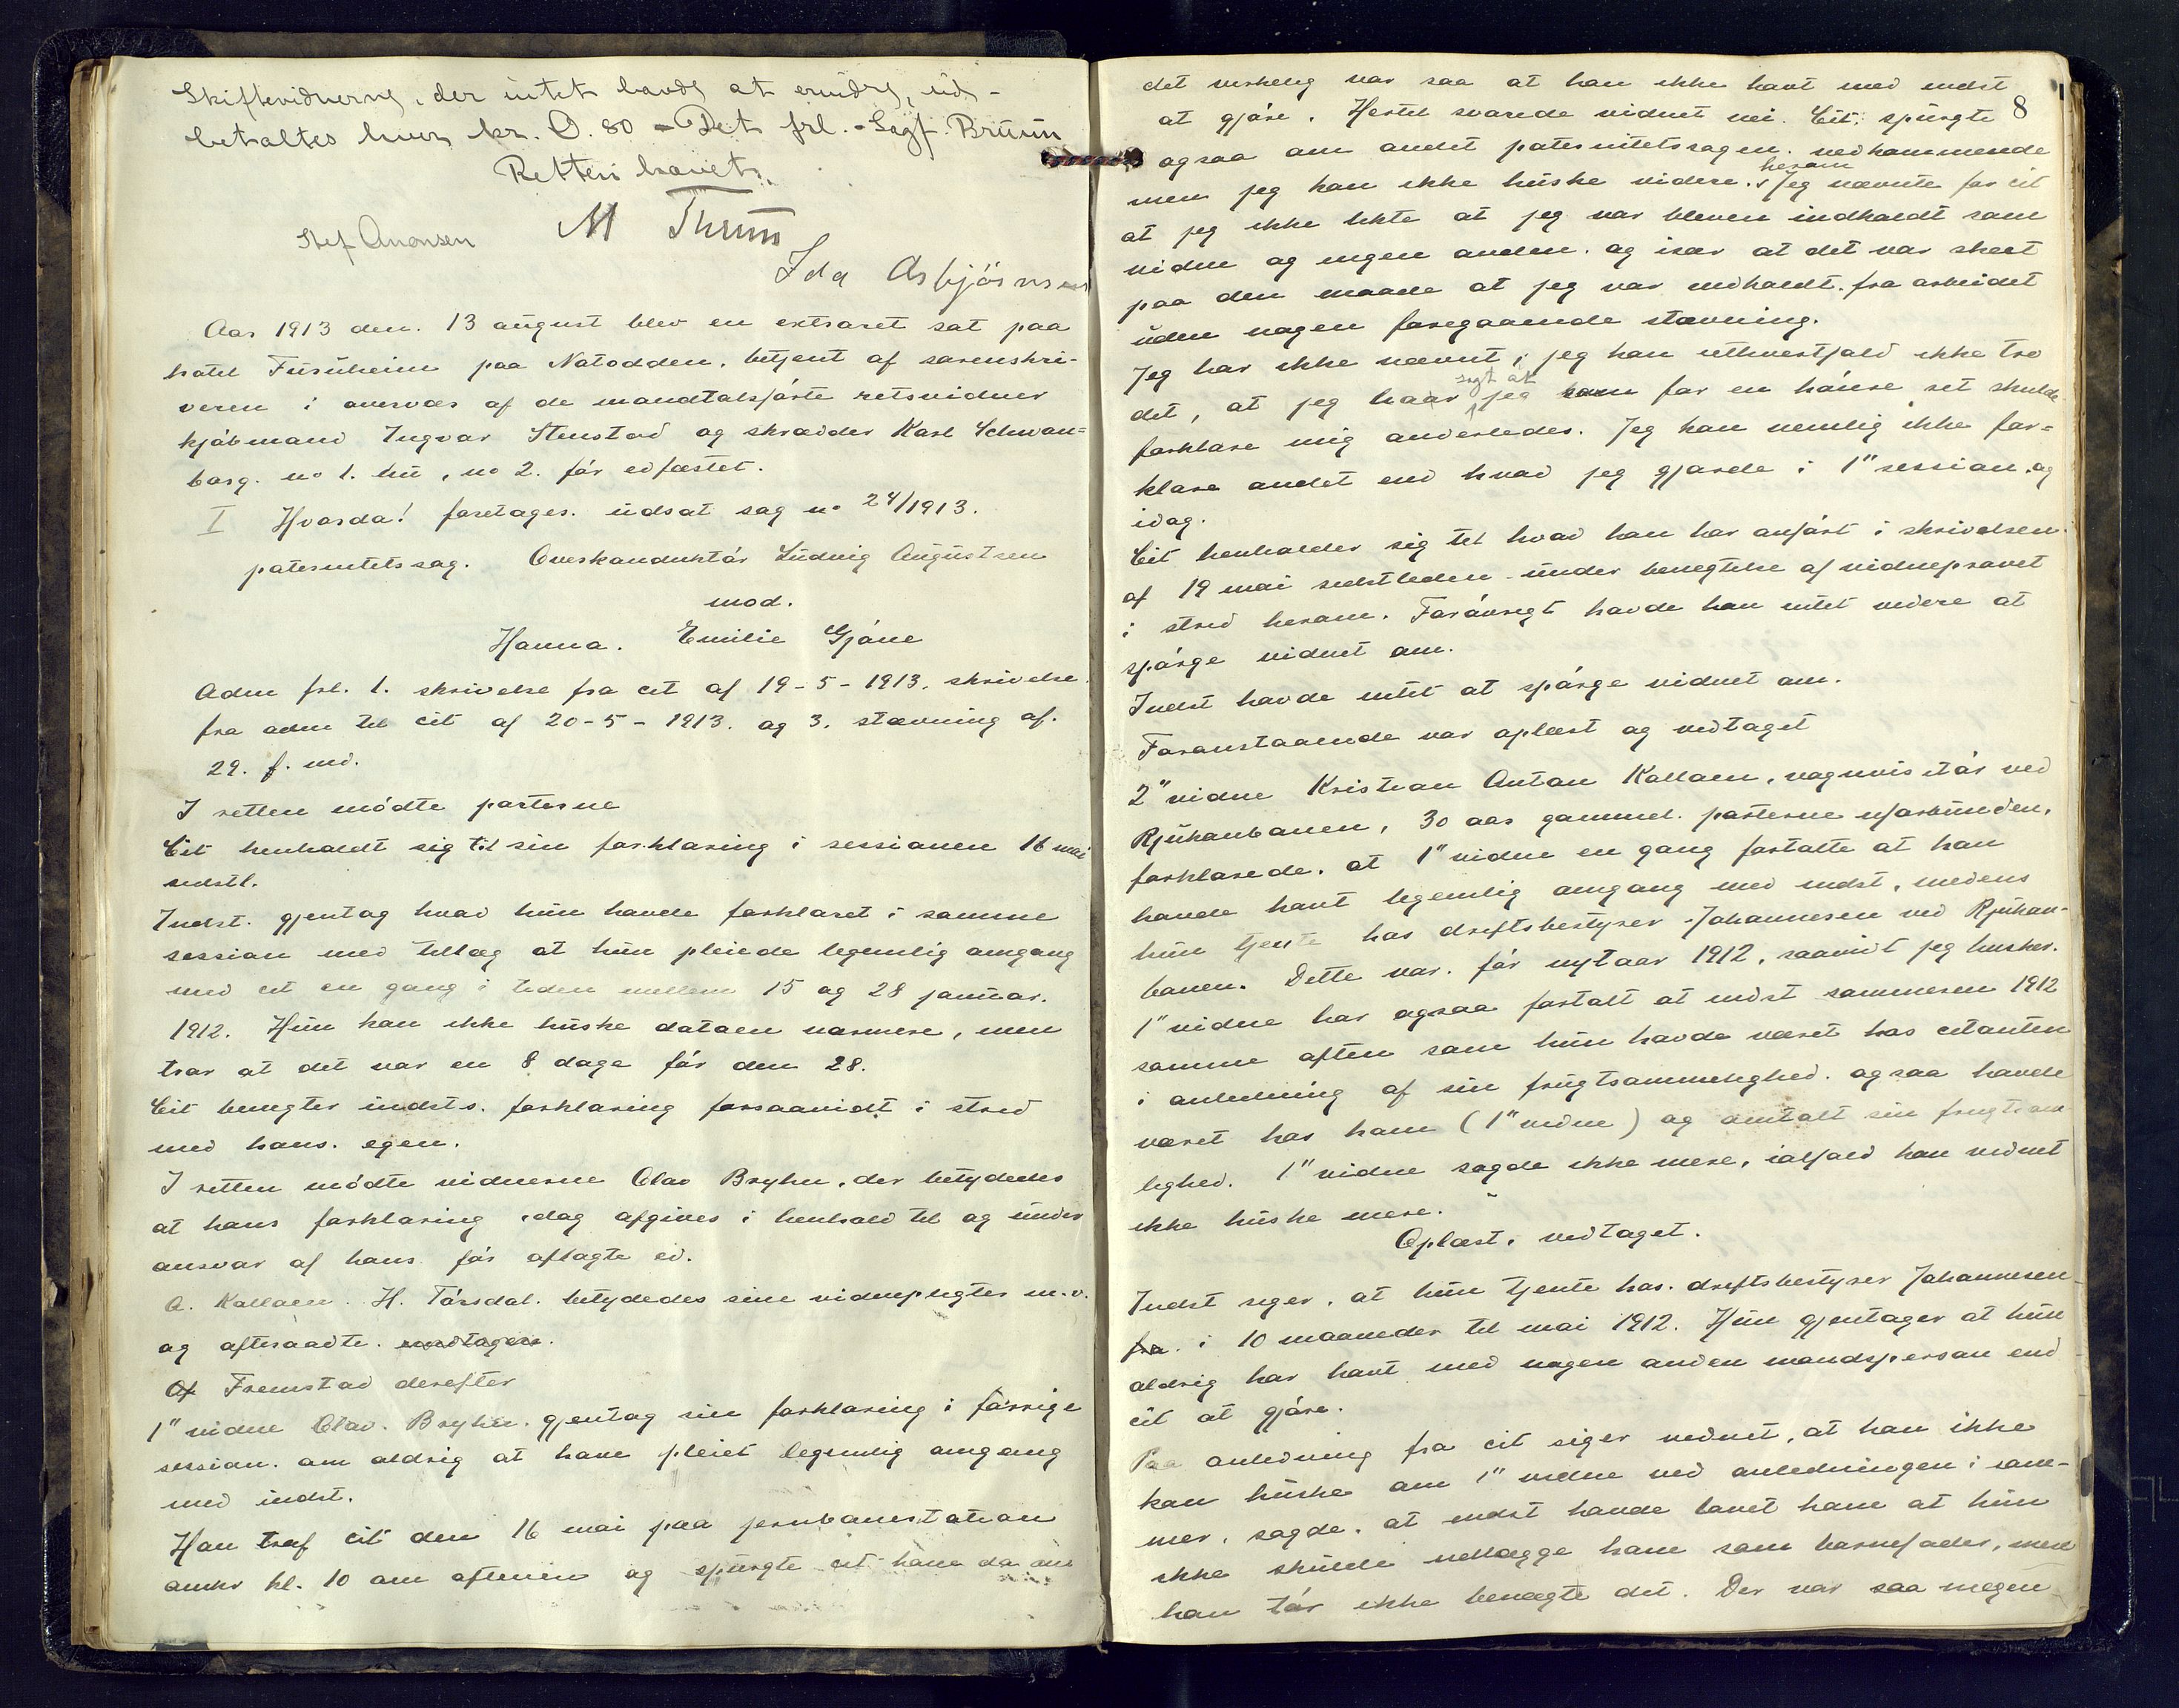 Skiftevidnerne, der intet havde at erindre, ud-
betaltes hver kr. 0.80 - Det frl. - Sagf. Bruun
Retten hævet.
M Thrum
Stef Anonsen
Ida Asbjörnsen
Aar 1913 den. 13 august blev en extraret sat paa
hotel Furuheim paa Notodden, betjent af sorenskri-
veren i overvær af de mandtalsførte retsvidner
kjøbmand Ingvar Stenstad og skrædder Karl Schwan-
borg. no 1. nu, no 2. før edfæstet.
I Hvorda! foretages. udsat sag no 24/1913.
paternitetssag. Overkonduktør Ludvig Augustsen
mod.
Hanna. Emilie Gjøne
Adm frl. 1. skrivelse fra cit af 19-5-1913, skrivelse
fra adm til cit af 20-5-1913. og 3. stævning af.
29. f. md.
I retten mødte parterne
Cit henholdt sig til sin forklaring i sessionen 16 mai
sidstl.
Indst. gjentog hvad hun havde forklaret i samme
session med tillæg at hun pleiede legemlig omgang
med cit en gang i tiden mellem 15 og 28 januar.
1912. Hun kan ikke huske datoen nærmere, men
tror at det var en 8 dage før den 28.
Cit benegter indsts. forklaring forsaavidt i strid
med hans. egen.
I retten mødte vidnerne Olav Bryhn, der betydedes
at hans forklaring idag afgives i henhold til og under
ansvar af hans før aflagte ed.
A. Kallaen. H. Tårsdal. betydedes sine vidnepligter m.v.
og afteraadte. modtagere.
Af Fremstod derefter
1" vidne Olav. Bryhn. gjentog sin forklaring i forrige
session. om aldrig at have pleiet legemlig omgang
med indst.
Han traf cit den 16 mai paa jernbanestation
omkr kl. 10 om aftenen og spurgte cit ham da om
8
det virkelig var saa at han ikke havt med indst
at gjøre. Hertil svarede vidnet nei. Cit. spurgte
ogsaa om andet paternitetssagen. vedkommende
men jeg kan ikke huske videre. herom Jeg nævnte for cit
at jeg ikke likte at jeg var bleven indkaldt som
vidne og ingen anden. og især at det var skeet
paa den maade at jeg var indkaldt. fra arbeidet
uden nogen foregaaende stævning.
Jeg har ikke nævnt, jeg kan ethvertfald ikke tro
det, at jeg har sagt at jeg kom for en høiere ret skulde
forklare mig anderledes. Jeg kan nemlig ikke for-
klare andet end hvad jeg gjorde i 1" session. og
idag.
Cit henholder sig til hvad han har anført i skrivelsen
af 19 mai sidstleden - under benegtelse af vidneprovet
i strid herom. Forøvrigt havde han intet videre at
spørge vidnet om.
Indst havde intet at spørge vidnet om.
Foranstaaende var oplæst og vedtaget
2" vidne Kristian Anton Kallaen, vognvisitør ved
Rjukanbanen, 30 aar gammel. parterne uforbunden,
forklarede. at 1" vidne en gang fortalte at han
havde havt legemlig omgang med indst, medens
hun tjente hos driftsbestyrer Johannesen ved Rjukan-
banen. Dette var. før nytaar 1912, saavidt jeg husker.
1" vidne har ogsaa fortalt at indst sommeren 1912
samme aften som hun havde været hos citanten
i anledning af sin frugtsommelighed. ogsaa havde
været hos ham (1" vidne) og omtalt sin frugtsom-
lighed. 1" vidne sagde ikke mere, ialfald kan vidnet
ikke huske mere.
Oplæst. vedtaget.
Indst siger. at hun tjente hos. driftsbestyrer Johannesen
fra. i 10 maaneder til mai 1912. Hun gjentager at hun
aldrig har havt med nogen anden mandsperson end
cit at gjøre.
Paa anledning fra cit siger vidnet, at han ikke
kan huske om 1" vidne ved anledningen i som-
mer. sagde. at indst havde lovet ham at hun
ikke skulde udlægge ham som barnefader, men
han tør ikke benægte det. Der var saa megen